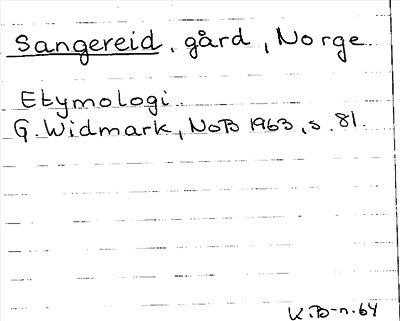 Sangereid, gård, Norge.
Etymologi.
G. Widmark, NoB 1963, s. 81.
K.B-n.64